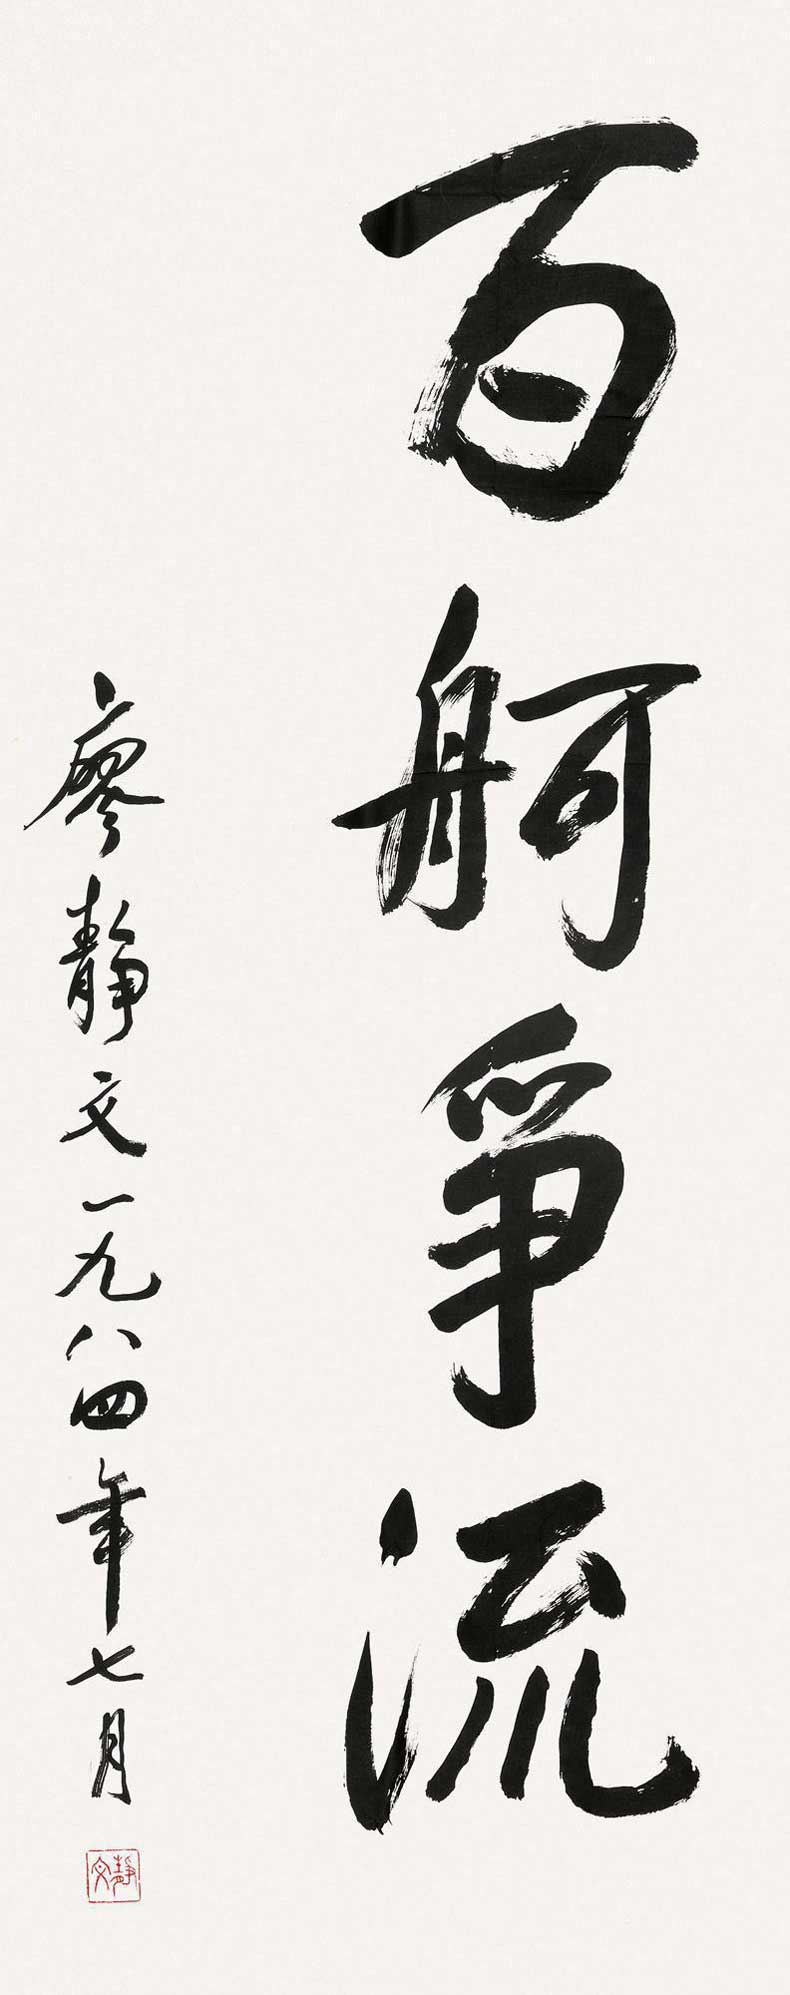 百舸爭流
廖靜文一九八四年七月
靜文